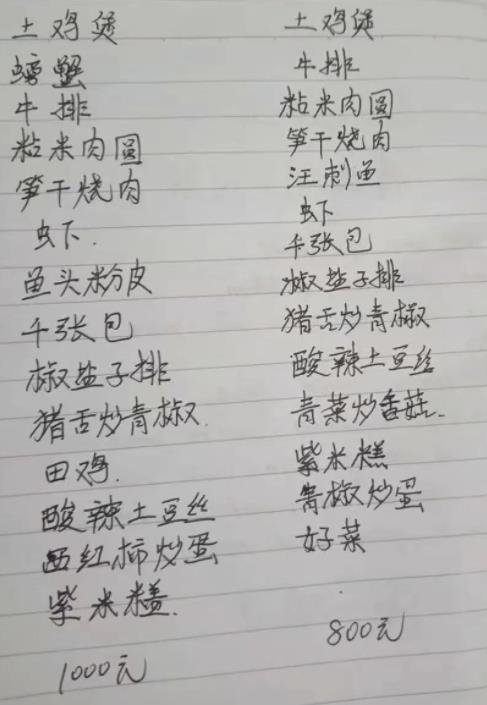 土鸡煲
螃蟹
牛排
粘米肉圆
笋干烧肉
虾.
鱼头粉皮
千张包
椒盐子排
猪舌炒青椒.
田鸡.
酸辣土豆丝
西红柿炒蛋
紫米糕.
1000元
土鸡煲
牛排
粘米肉圆
笋干烧肉
汪刺鱼
虾
千张包
椒盐子排
猪舌炒青椒
酸辣土豆丝
青菜炒香菇.
紫米糕
青椒炒蛋
好菜
800元